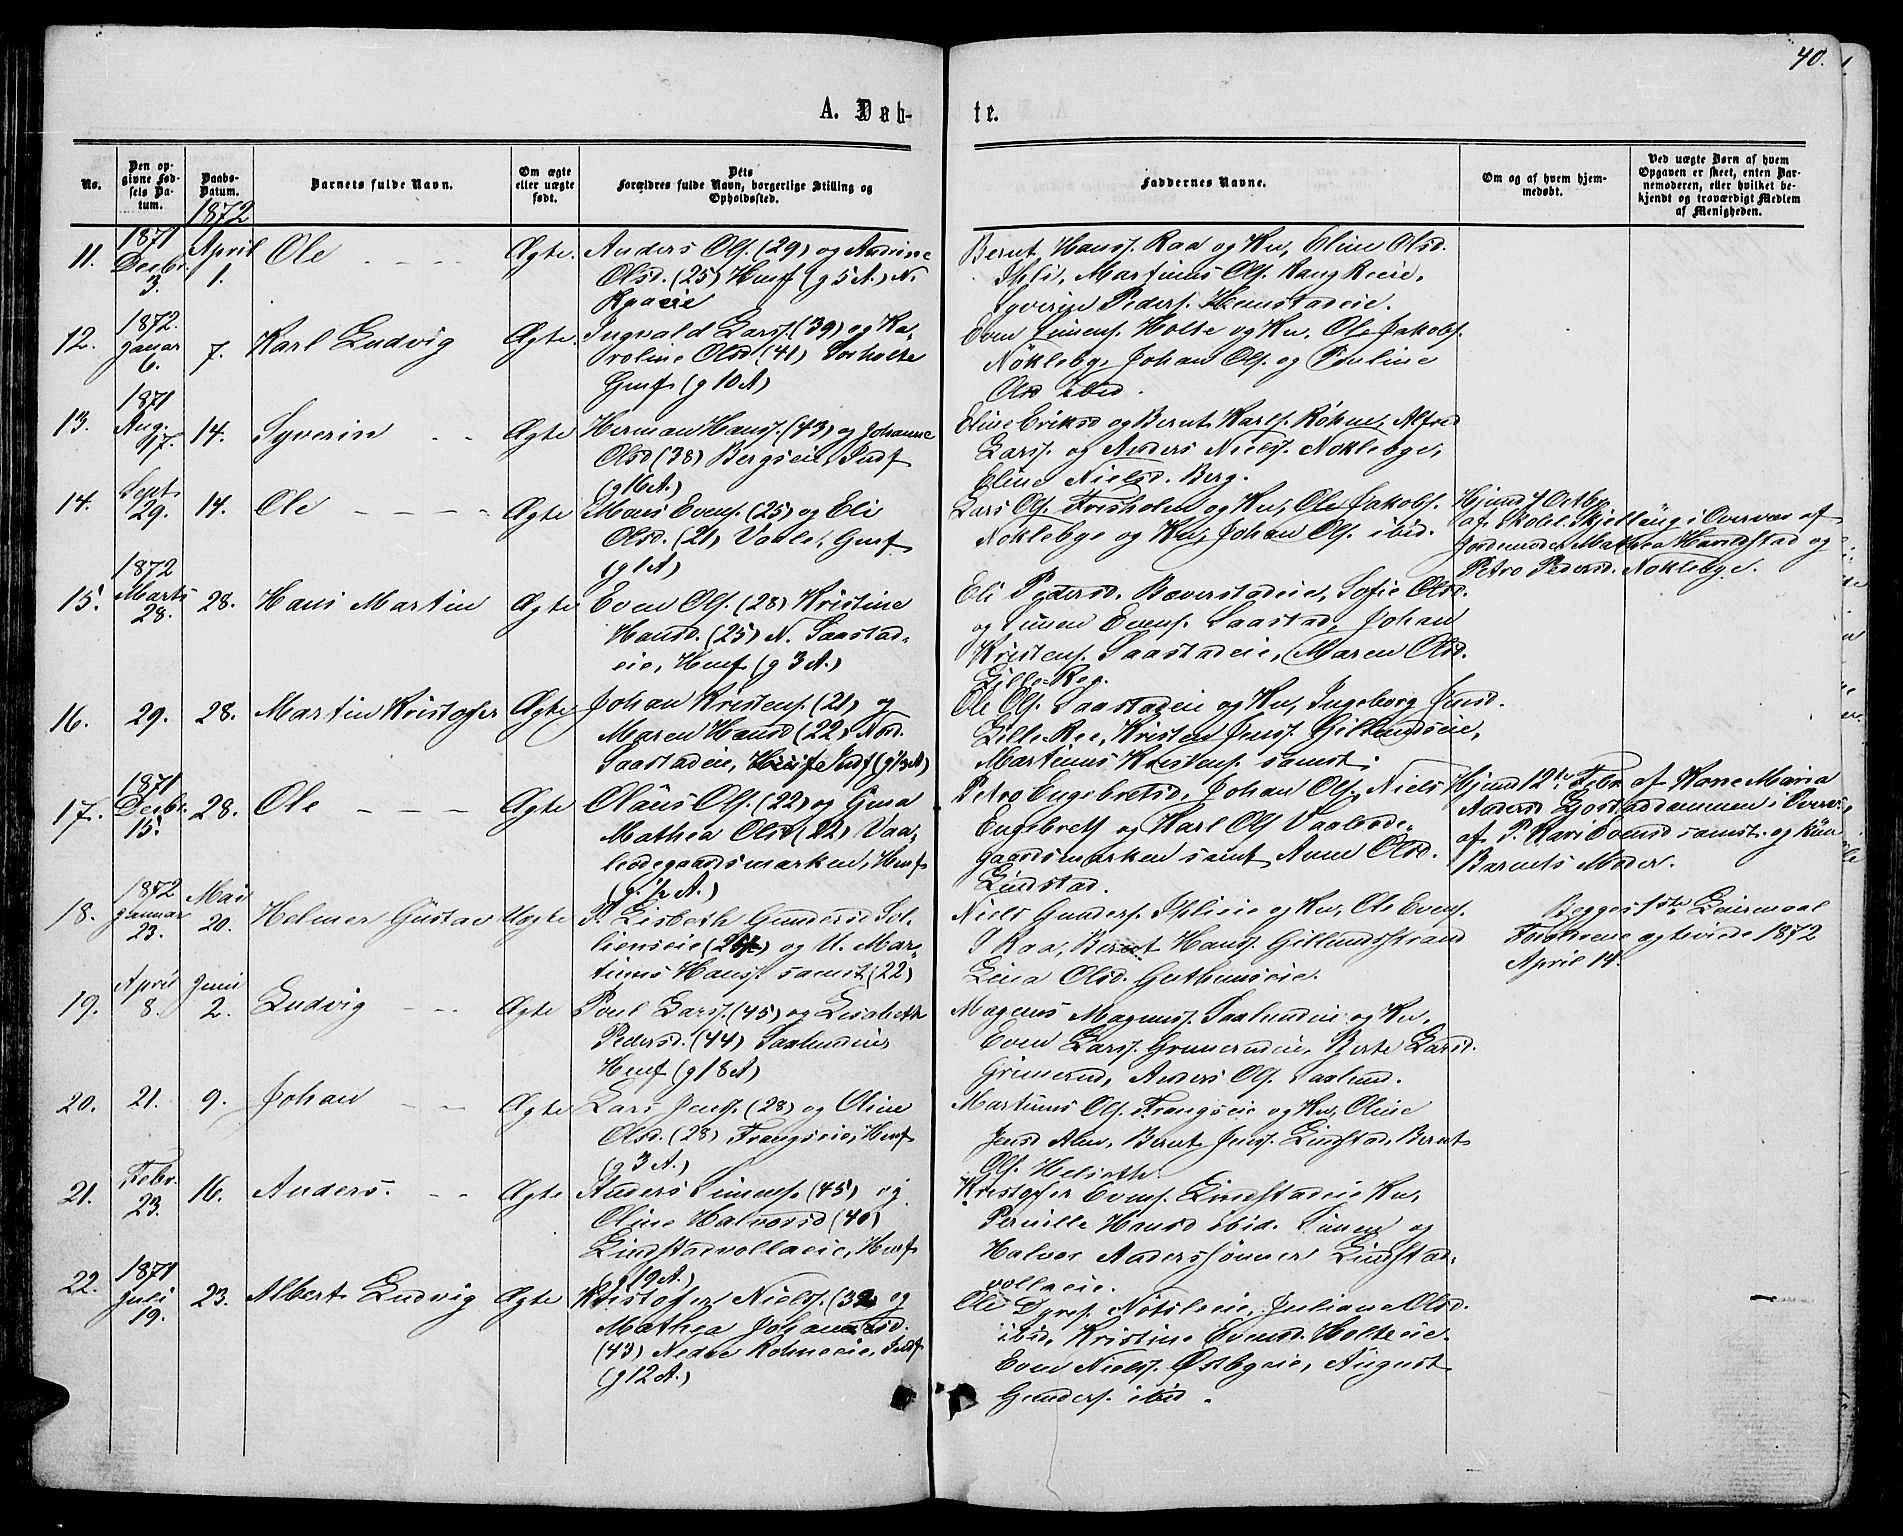 40.
A. Døb-
te.
No.
Den op-
givne Fød-
sels Da-
tum.
Daabs-
Datum.
Barnets fulde Navn.
Om ægte
eller uægte
født.
Dets
Forældres fulde Navn, borgerlige Stilling og
Opholdssted.
Faddernes Navne.
Om og af hvem hjem-
medøbt.
Ved uægte Børn af hvem
Opgaven er skeet, enten Bar-
nemoderen, eller hvilket be-
kjendt og troværdigt Medlem
af Menigheden.
1872
11.
1871
Decbr.
3.
April
1.
Ole
Ægte.
Anders Ols. (29) og Andrine
Olsd. (25) Husf (g 5 A) N.
Raaeie
Bernt Hanss. Raa og Ku, Eline Olsd.
Martinus Ols.
Syverin Peders. Hemstadeie.
12.
1872.
Januar
6.
7.
Karl Ludvig
Ægte
Ingvald Larss. (39) og Ka-
roline Olsd (41) Torholte
Gmf (g 10 A)
Even Simens. Holte og Ku, Ole Jakobs.
Nøkleby, Johan Ols. og Pauline
Olsd ibid.
13.
1871
Aug.
17.
14.
Syverin
Ægte
Herman Hanss. (43) og Johanne
Olsd (38) Bergseie, Indf
(g 16 A)
Eline Eriksd og Bernt Karls. Røhne, Alfred
Larss. og Anders Niels. Nøklebye,
Eline Nielsd. Berg.
14.
Sept.
29.
14.
Ole
Ægte
Mons Evens. (25) og Eli
Olsd. (21) Vaale, Gmf
(g 1 A)
Lars Ols. Frisholm og Ku, Ole Jakobs.
Noklebye og Ku, Johan Ols. ibid.
af Skolel. i Overvær af
Jordemoder Mathea og
Petro Pedersd. Noklebye.
15.
1872
Marts
28.
28.
Hans Martin
Ægte
Even Ols. (28) Kristine
Hansd. (25) N. Saastad-
eie, Husf (g 3 A)
Eli Pedersd. Bæverstadeie, Sofie Olsd.
og Simen Evens. Saastad, Johan
Kristens. Saastadeie, Maren Olsd.
Lille-Ree.
16.
29.
28.
Martin Kristofer
Ægte
Johan Kristens. (21) og
Maren Hansd (22) Nord.
Saastadeie, Indf (g 13 A)
Ole Ols. Saastadeie og Ku, Ingeborg Jensd.
Lille-Ree, Kristen Jens. Gillundseie,
Martinus Kristens. samst.
17.
1871
Decbr.
15.
28.
Ole
Ægte
Olaus Ols. (22) og Gina
Mathea Olsd (22) Vaa-
leødegaardsmarken, Husf
(g. 1/2 A.)
Petro Engebretsd, Johan Ols, Niels
Engebrets og Karl Ols Vaaleøde-
gaardsmarken samt Anne Olsd.
Lindstad.
Hjemd 12te Febr. af Kari Maria
Andersd i Overv.
af P. Kari Evensd samst. og
Barnets Moder.
18.
1872
Januar
23.
Mai
20.
Helmer Gustav
Uægte
P. Lisbeth Gundersd Sol-
lienseie og U. Mar-
tinus Hans. samst (22)
Niels Gunders. og Ku, Ole Evens.
Raa, Berent Hans. Gillundstrand
Lina Olsd. Guthuuseie.
Begges 1ste Leiermaal
og viede 1872
April 14.
19.
April
8.
Juni
2.
Ludvig
Ægte
Poul Larss. (45) og Lisabeth
Pedersd. (44) Saalundeie
Husf (g 18 A)
Magnus Magnuss. Saalundeie og Ku,
Even Larss. Grimerudeie, Berte Larsd.
Grimerud, Anders Ols. Saalund.
20.
21.
9.
Johan
Ægte
Lars Jens. (28) og Oline
Olsd. (28) Frangseie, Husf
(g 3 A.)
Martinus Ols. Frangseie og Ku, Oline
Jensd Alm, Bernt Jens. Lindstad, Bernt
Ols. Helseth.
21.
Febr.
23.
16.
Anders.
Ægte
Anders Simens. (45) og
Oline Halvorsd (40)
Lindstadvollaeie, Husf
(g 19 A.)
Kristofer Evens. Lindstadeie Ku,
Pernille Hansd ibid. Simen og
Halvor Anderssønner Lindstad-
vollaeie.
22.
1871
Juli
19.
23.
Albert Ludvig
Ægte
Kristofer Niels. (32 og
Mathea Johannesd.
(43) Nedre Rohneeie, Indf
(g 12 A.)
Ole Dyres. Juliane Olsd.
ibid, Kristine Evensd. Holteeie.
Even Niels. Østbyeie, August
Gunders. ibid.